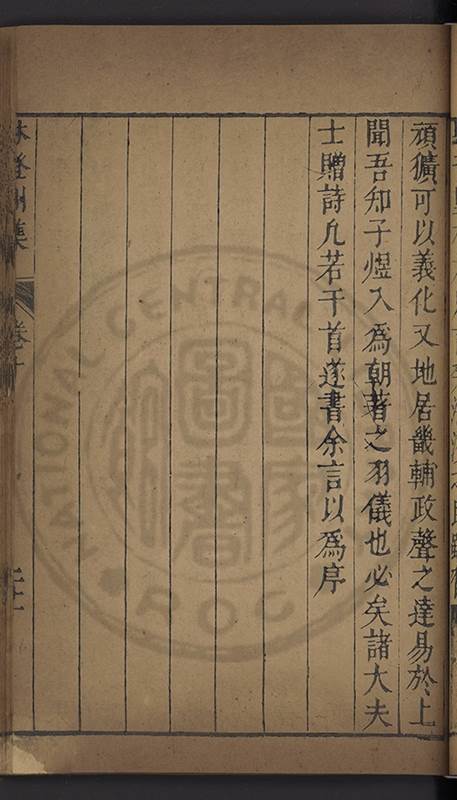 頑獷可以義化又地居畿輔政聲之達易於上
聞吾知子煜入為朝著之羽儀也必矣諸大夫
士贈詩凢若干首遂書余言以為序
林登州集
卷十
NATIONAL CENTRAL LIBRARY
R.O.C
國家圖書